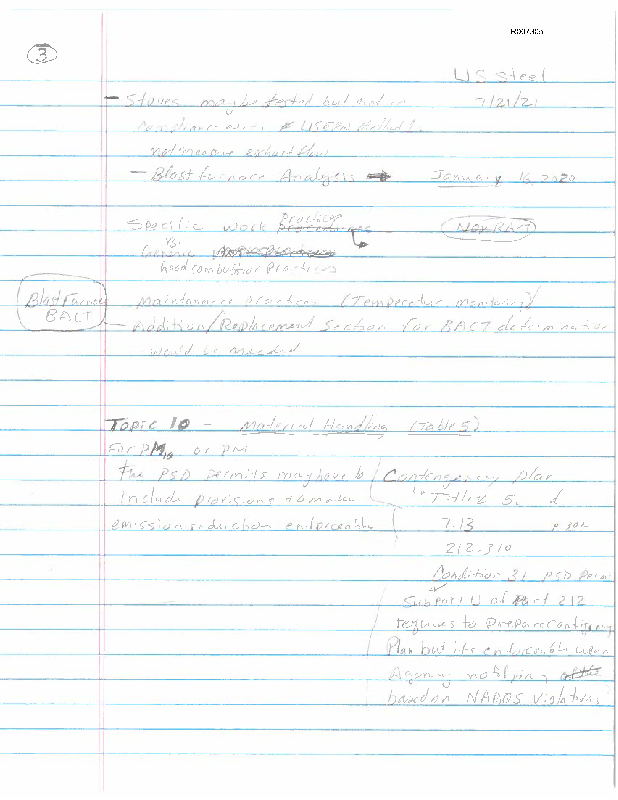 R007305
3
US Steel
- Stoves may be tested but not in 7/21/21
compliance with USEPA Method 1.
not measure exhaust flow
- Blast Furnace Analysis → January 16, 2020
Specific work Practices
vs. Non BACT
Generic
Good combustion Practices
Blast Furnace
BACT
Maintenance practices (Temperature monitoring)
- Addition/Replacement Section for BACT determination
would be needed
Topic 10 - Material Handling (Table 5)
For PM10 or PM
The PSD permits may have to
include provisions to make
emission reduction enforceable
Contengency plan
in Title 5.
7.13
212.310
Condition 31 PSD Perm
Subpart U of Part 212
requires to Prepare Contigency
Plan but its enforceable when
Agency notifying
based on NAAQS Violations